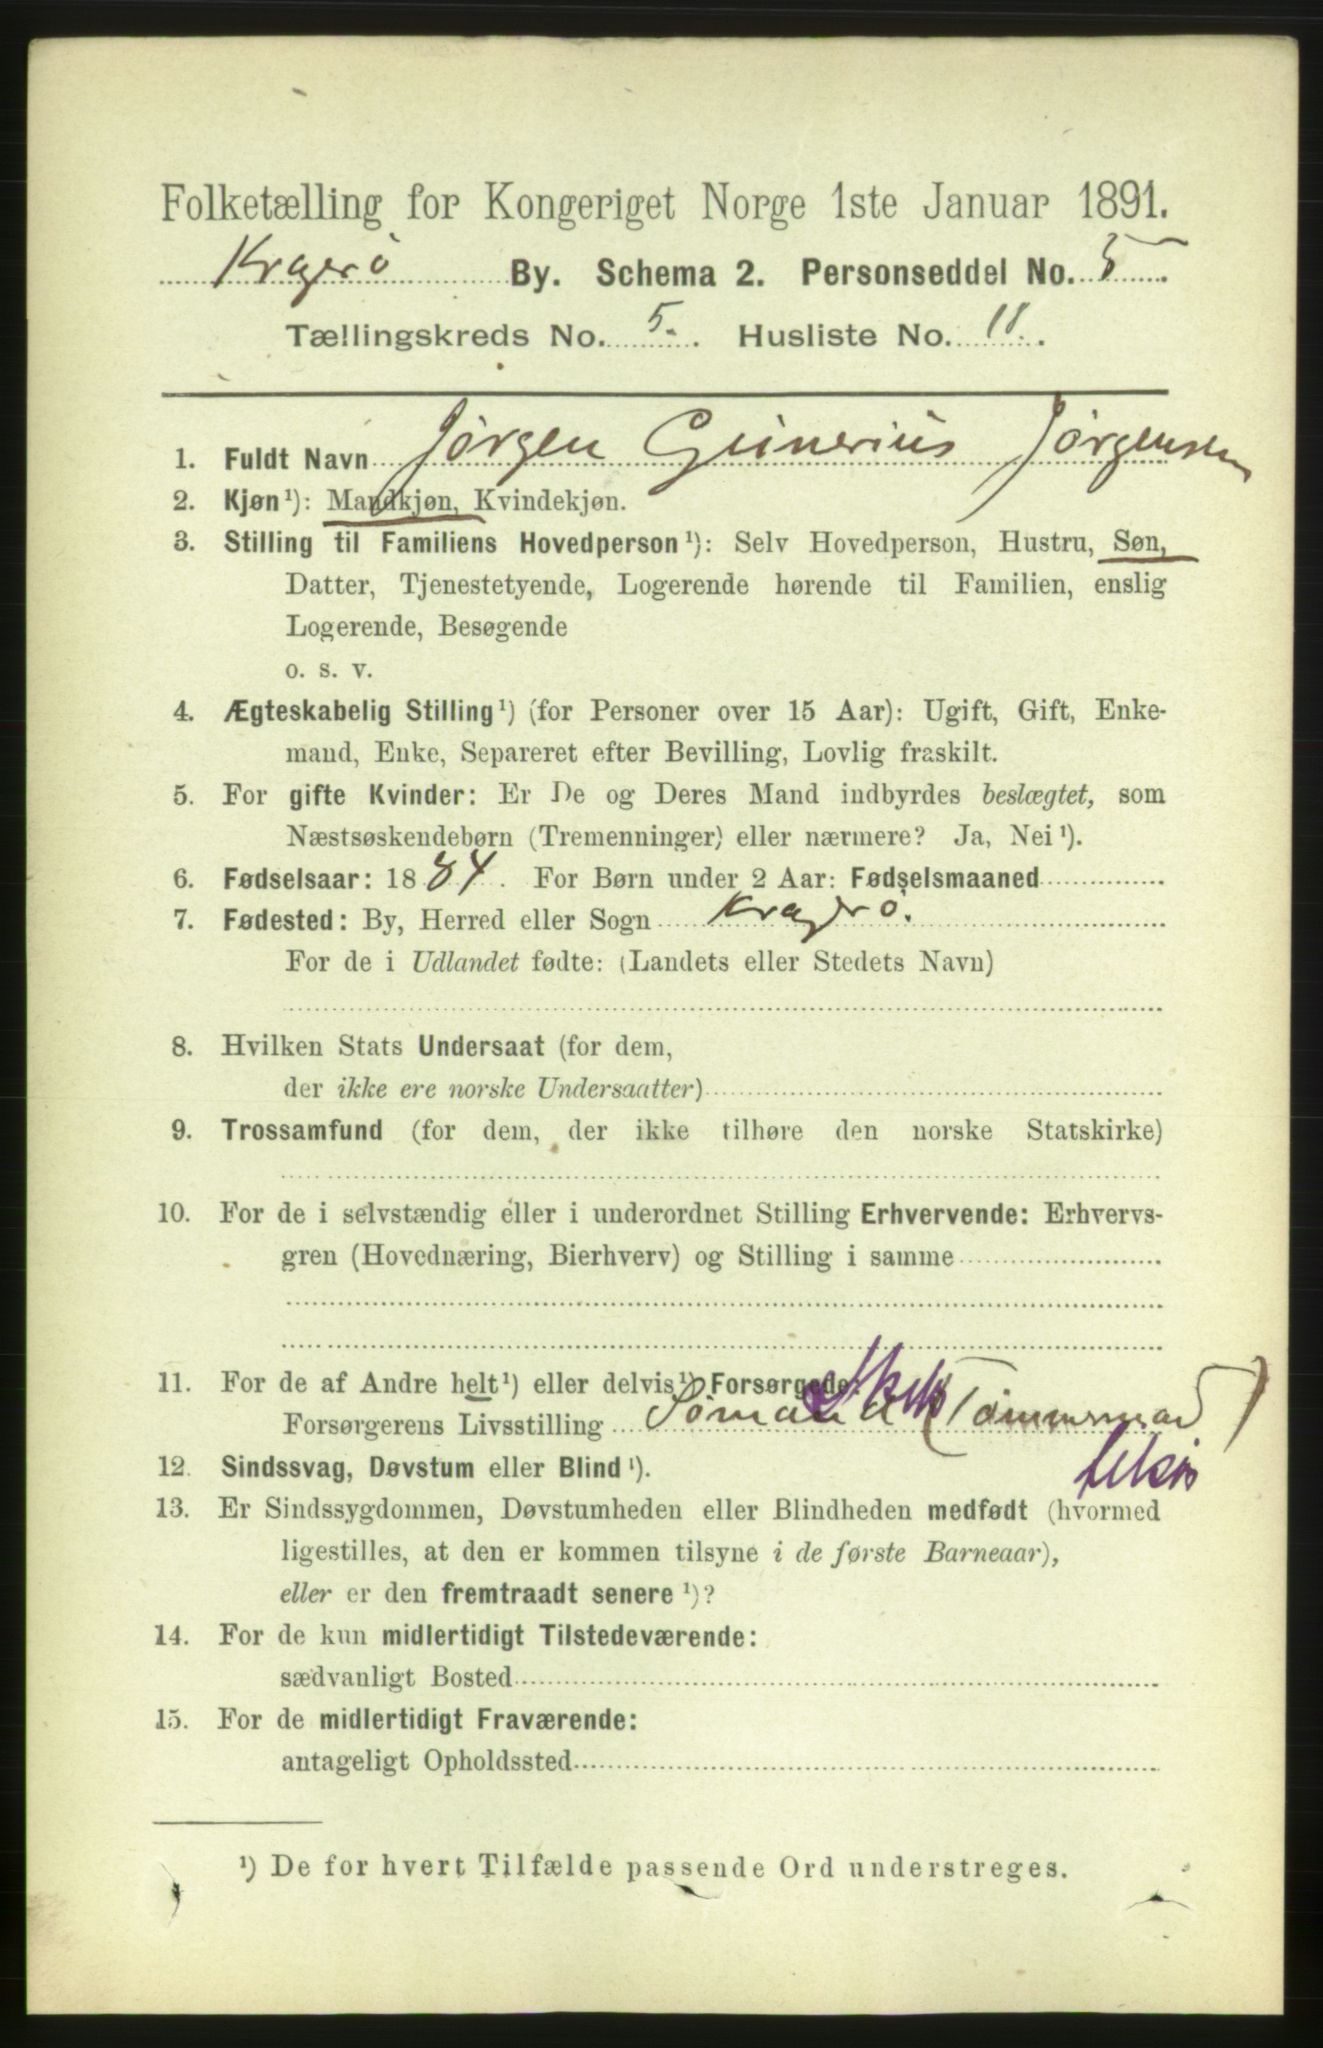 Folketælling for Kongeriget Norge 1ste Januar 1891.
Kragerö By. Schema 2. Personseddel No. 5
Tællingskreds No. 5. Husliste No. 11.
1. Fuldt Navn Jörgen Gunerius Jörgensen
2. Kjøn¹): Mandkjøn, Kvindekjøn.
3. Stilling til Familiens Hovedperson¹): Selv Hovedperson, Hustru, Søn,
Datter, Tjenestetyende, Logerende hørende til Familien, enslig
Logerende, Besøgende
o. s. v.
4. Ægteskabelig Stilling¹) (for Personer over 15 Aar): Ugift, Gift, Enke-
mand, Enke, Separeret efter Bevilling, Lovlig fraskilt.
5. For gifte Kvinder: Er De og Deres Mand indbyrdes beslægtet, som
Næstsøskendebørn (Tremenninger) eller nærmere? Ja, Nei¹).
6. Fødselsaar: 1884. For Børn under 2 Aar: Fødselsmaaned
7. Fødested: By, Herred eller Sogn Kragerö.
For de i Udlandet fødte: (Landets eller Stedets Navn)
8. Hvilken Stats Undersaat (for dem,
der ikke ere norske Undersaatter)
9. Trossamfund (for dem, der ikke tilhøre den norske Statskirke)
10. For de i selvstændig eller i underordnet Stilling Erhvervende: Erhvervs-
gren (Hovednæring, Bierhverv) og Stilling i samme
11. For de af Andre helt¹) eller delvis¹) Forsørgede
Forsørgerens Livsstilling Sömand (Tömmermand)
12. Sindssvag, Døvstum eller Blind¹).
13. Er Sindssygdommen, Døvstumheden eller Blindheden medfødt (hvormed
ligestilles, at den er kommen tilsyne i de første Barneaar),
eller er den fremtraadt senere¹)?
14. For de kun midlertidigt Tilstedeværende:
sædvanligt Bosted
15. For de midlertidigt Fraværende:
antageligt Opholdssted
¹) De for hvert Tilfælde passende Ord understreges.